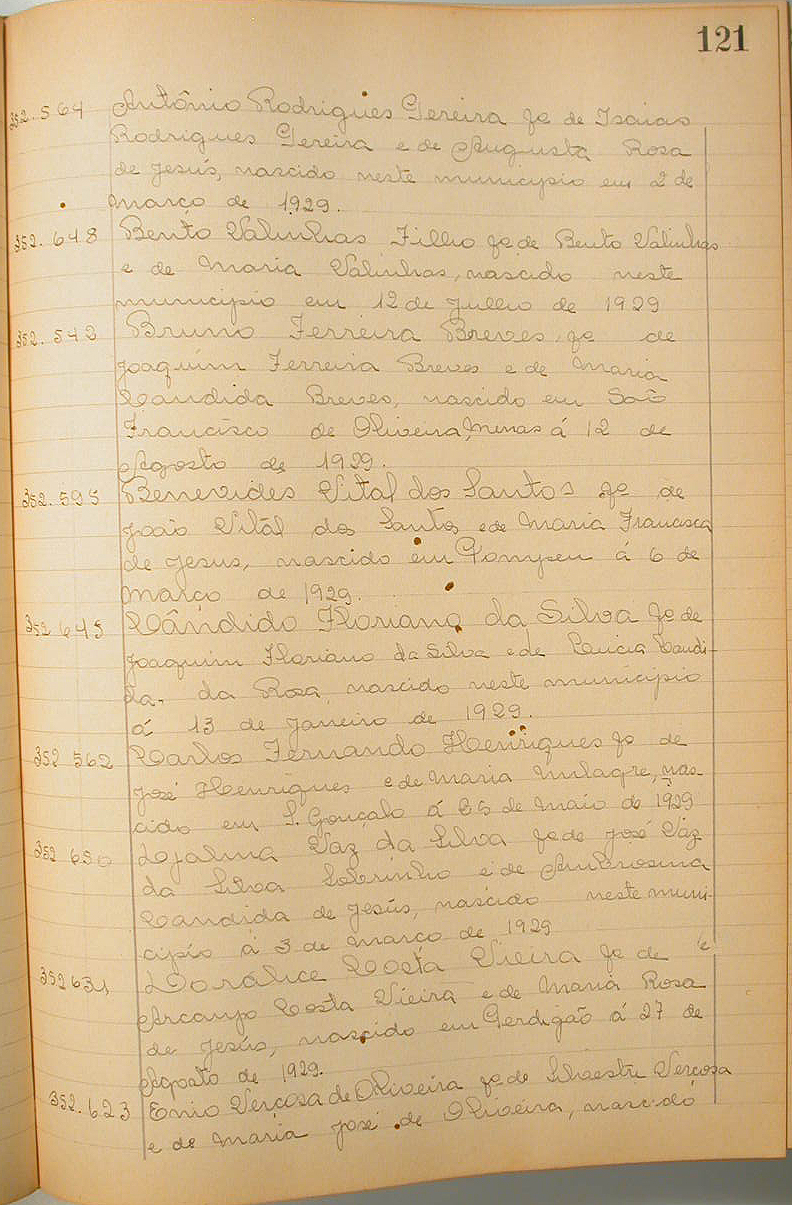 121
352.564 Antônio Rodrigues Pereira fo de Isaias
Rodrigues Pereira e de Augusta Rosa
de Jesús, nascido neste municipio em 2 de
março de 1929.
352.648 Bento Valinhas Filho fo de Bento Valinhas
e de Maria Valinhas, nascido neste
municipio em 12 de julho de 1929
352.542 Bruno Ferreira Breves, fo de
Joaquim Ferreira Breves e de Maria
Candida Breves, nascido em São
Francisco de Oliveira, Minas á 12 de
Agosto de 1929.
352.595 Benevides Vital dos Santos fo de
João Vital dos Santos e de Maria Francisca
de Jesus, nascido em Pompeu á 6 de
março de 1929.
352 645 Cândido Floriano da Silva fo de
Joaquim Floriano da Silva e de Candi-
da. da Rosa, nascido neste municipio
á 13 de janeiro de 1929.
352 562 Carlos Fernando Henriques fo de
José Henriques e de Maria Milagre, nas-
cido em S. Gonçalo á de Maio de 1929
352 650 Djalma Vaz da Silva fo de José Vaz
da Silva Sobrinho e de Ambrosina
Candida de Jesús, nascido neste muni-
cipío á 3 de março de 1929
352631 Doralice Costa Vieira fo de
Arcanjo Costa Vieira e de Maria Rosa
de Jesús, nascido em Perdigão á 27 de
Agosto de 1929.
352.623 Enio Verçosa de Oliveira fo de Silvestre Verçosa
e de Maria José de Oliveira, nascido